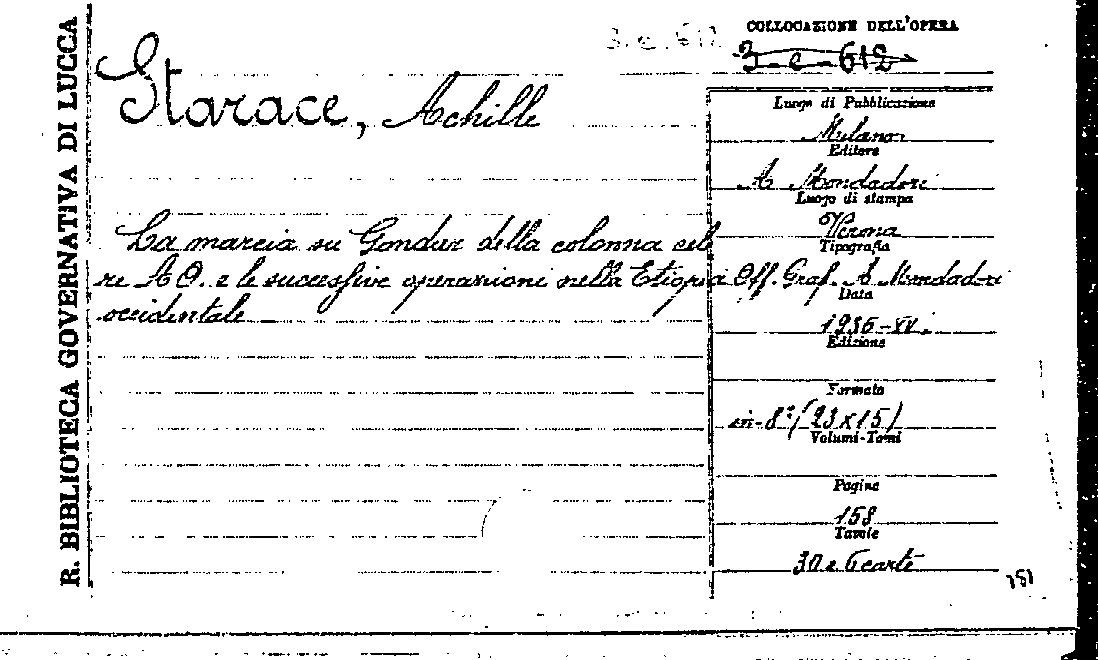 R. BIBLIOTECA GOVERNATIVA DI LUCCA
3. c. 612
COLLOCAZIONE DELL'OPERA
3-c-612
Starace, Achille
La marcia su Gondar della colonna cele
re A O. e le successive operazioni nella Etiopia
occidentale
Luogo di Pubblicazione
Milano
Editore
A. Mondadori
Luogo di stampa
Verona
Tipografia
Off. Graf. A. Mondadori
Data
1936-XV.
Edizione
Formato
in-8° (23x15)
Volumi-Tomi
Pagine
158
Tavole
30 e 6 carte
151